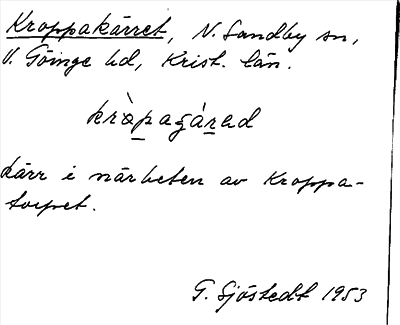 Kroppakärret, N. Sandby sn,
V. Göinge hd, Krist. län.
kràpagárad
Kärr i närheten av Kroppa-
torpet.
G. Sjöstedt 1953